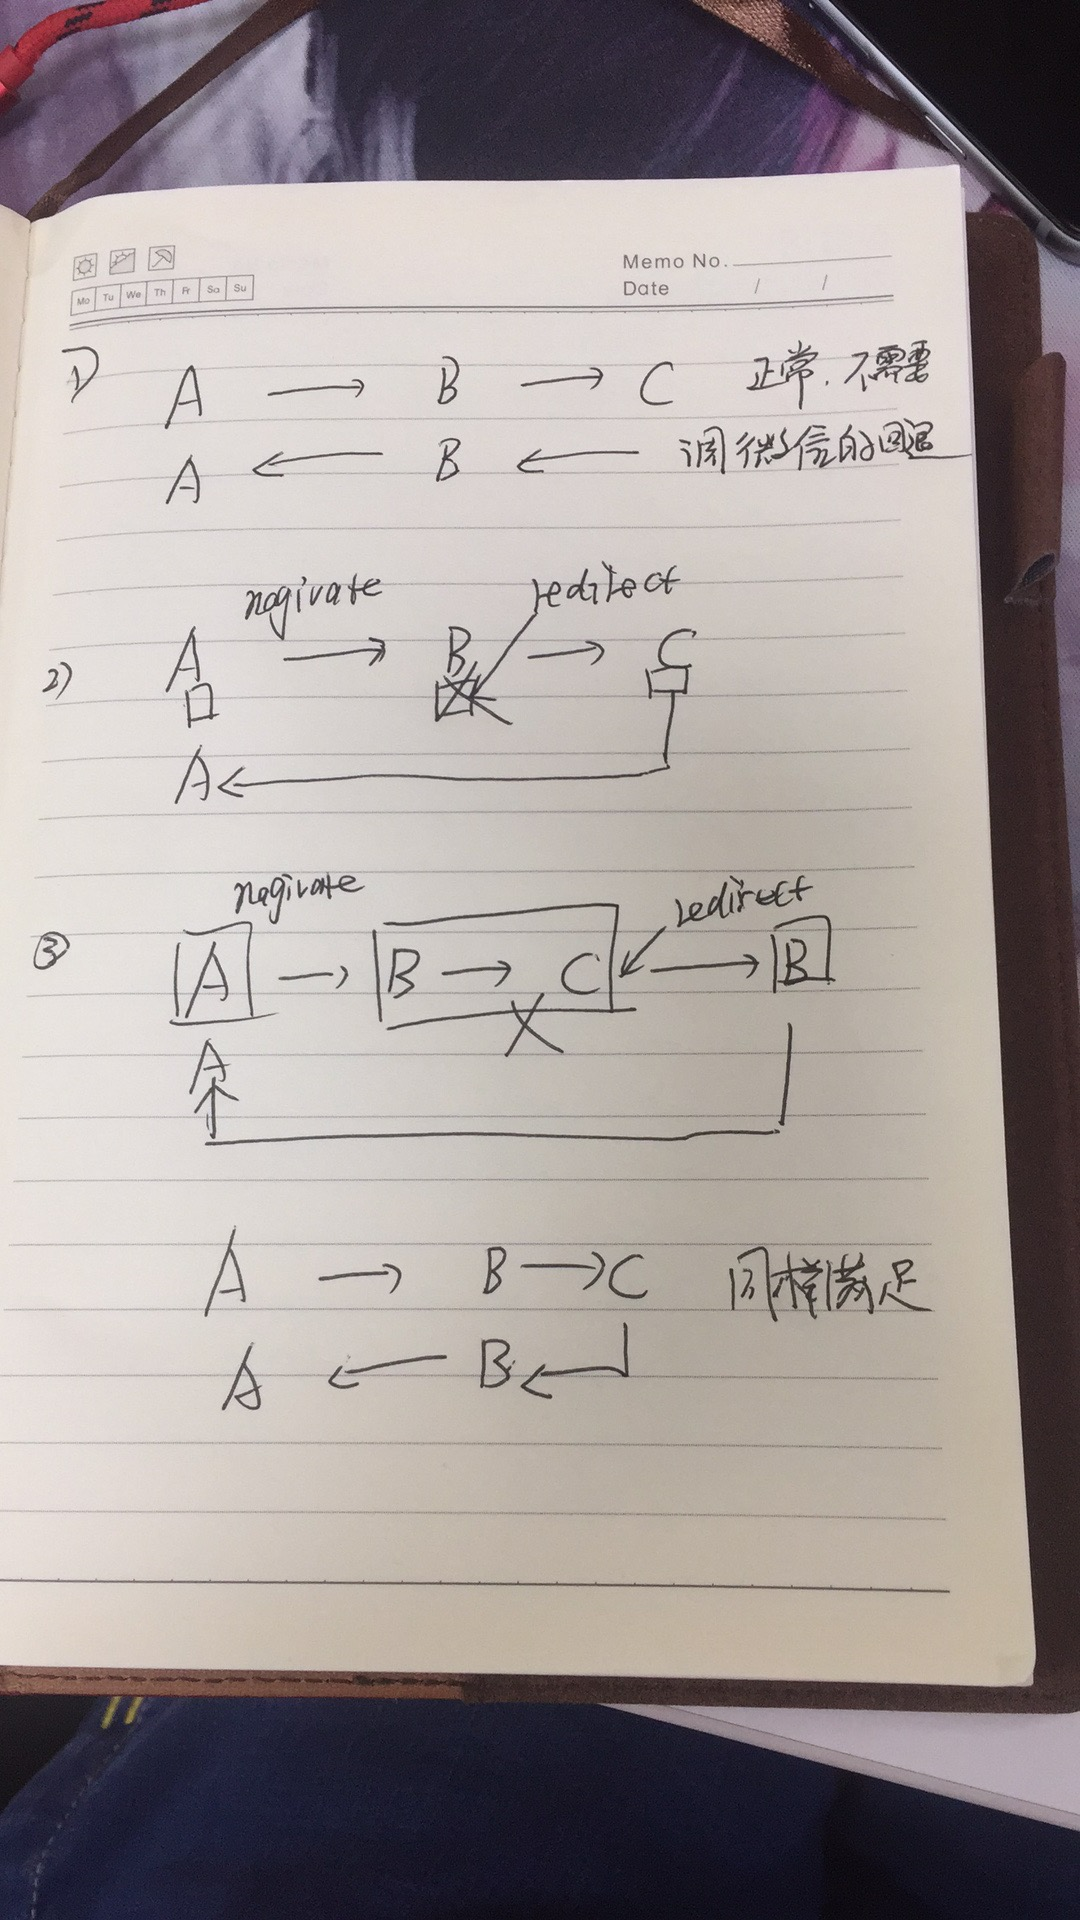 Memo No.
Mo Tu We Th Fr Sa Su
Date / /
1)
A → B → C 正常.不需要
A ← B ← 调微信的回退
nagivate redirect
2) A → B → C
A ←
nagivate redirect
③ A → B → C → B
X
A
A → B → C 同样满足
A ← B ←